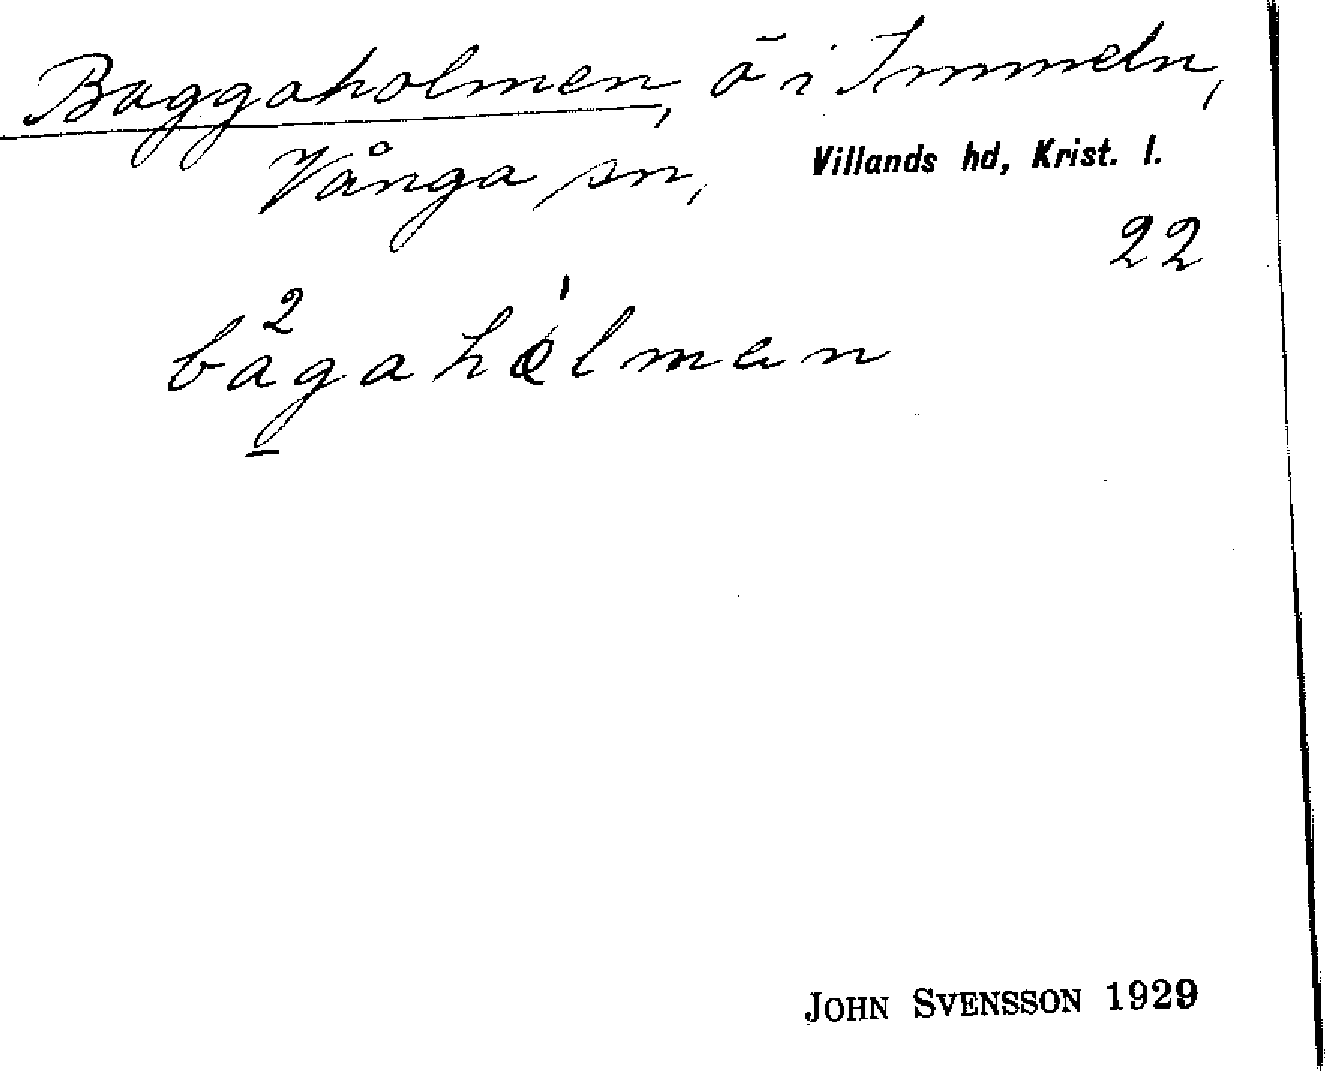 Baggaholmen, ö i Immeln,
Vånga sn, Villands hd, Krist. l.
22
bagahólman
JOHN SVENSSON 1929